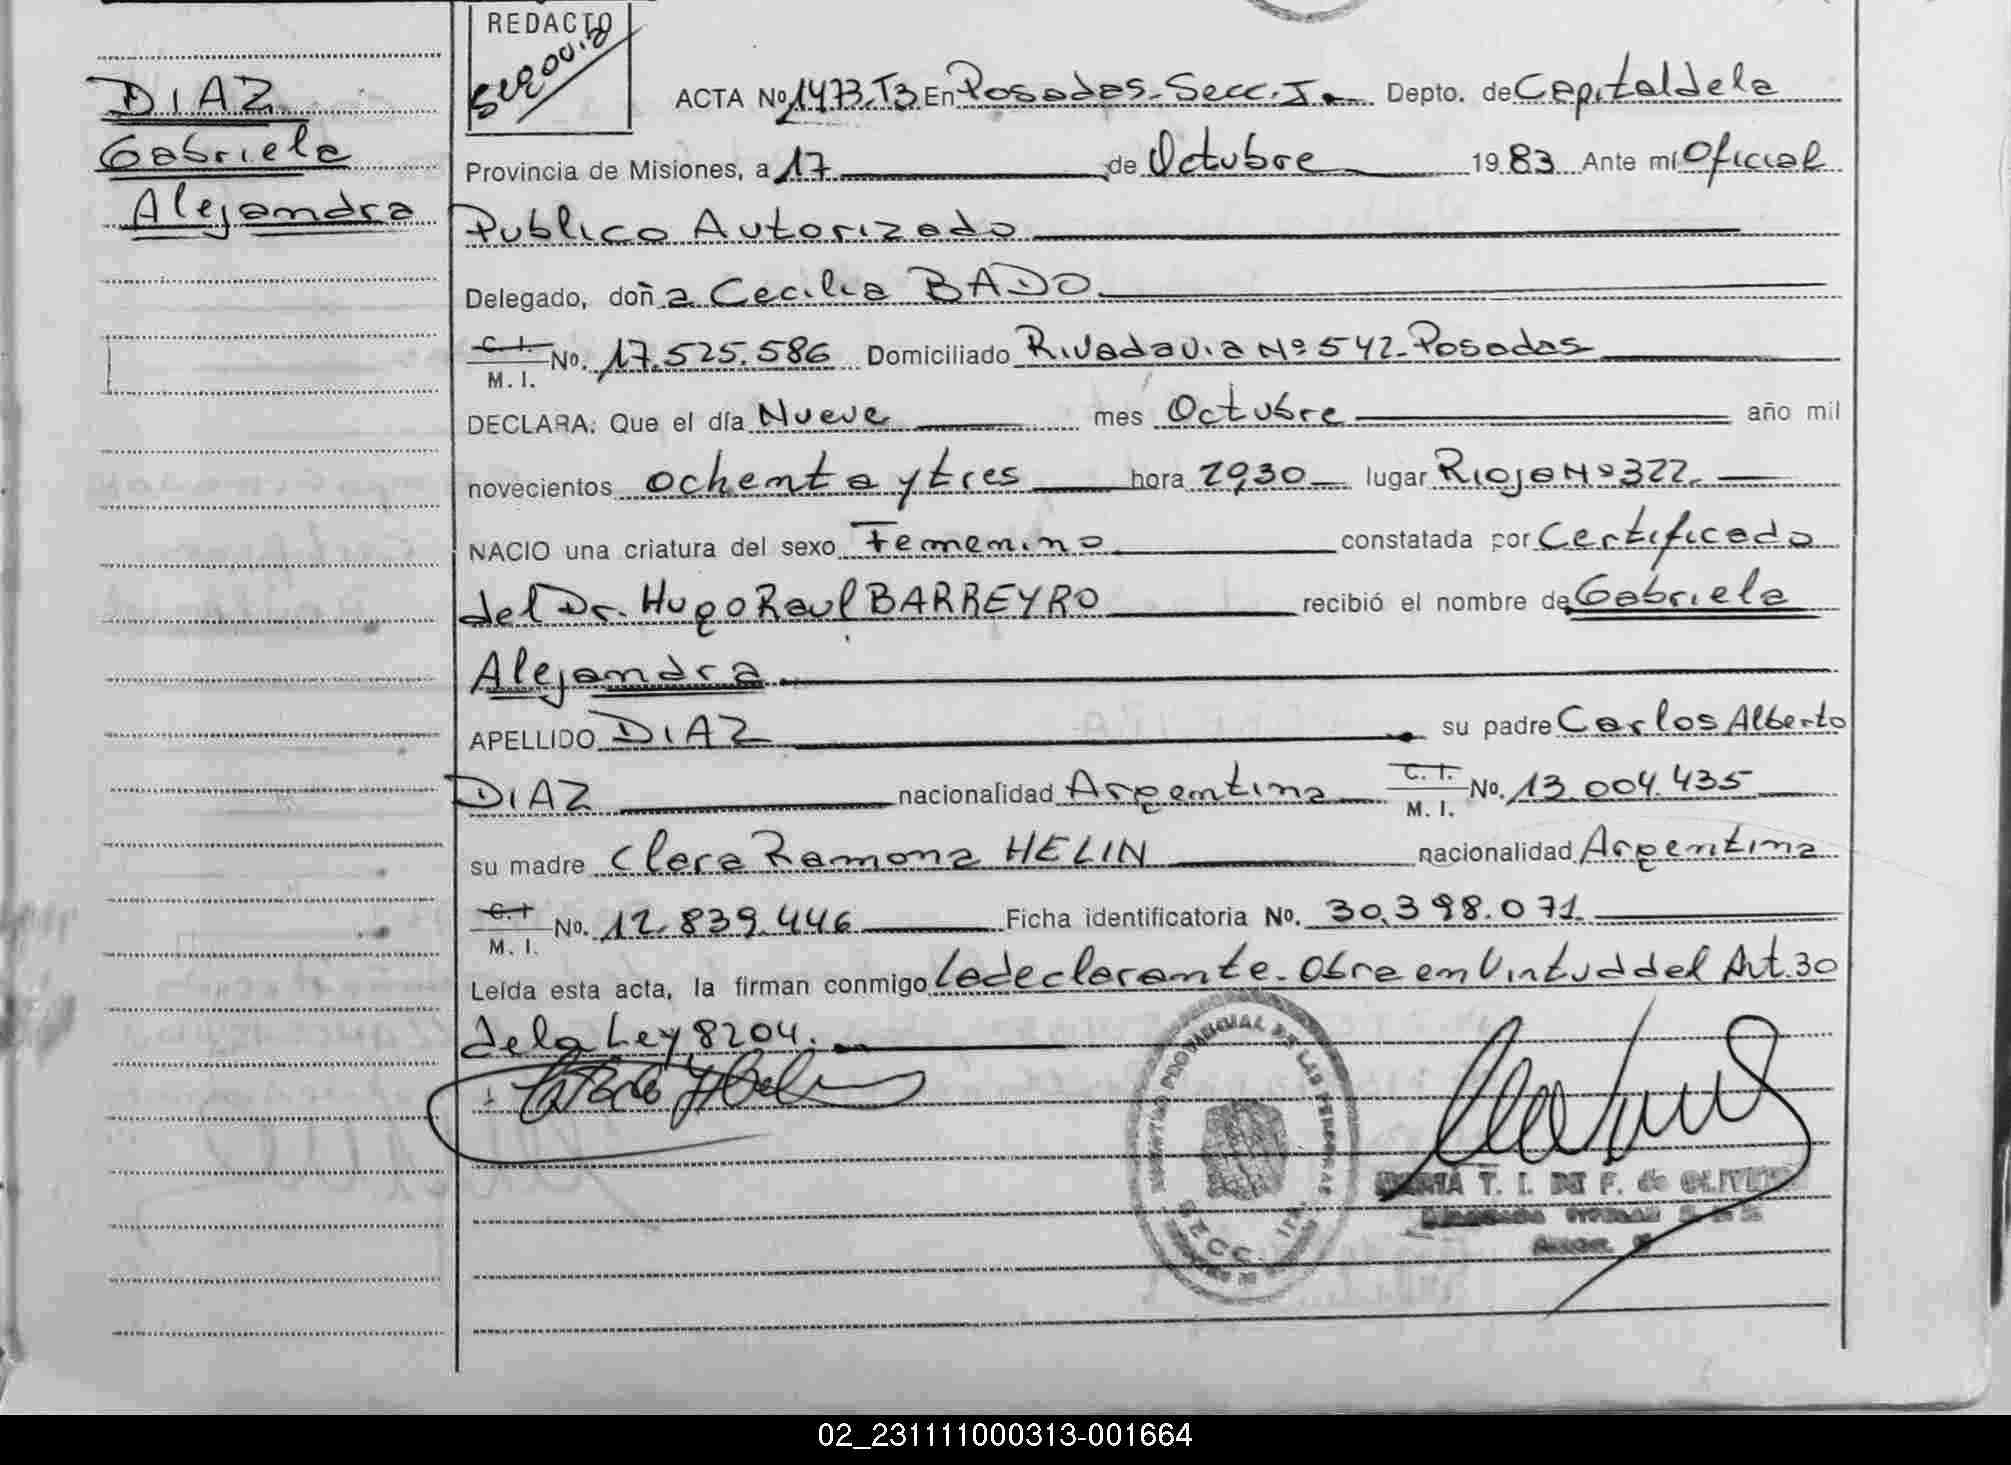 DIAZ
Gabriela
Alejandra
REDACTO
ACTA Nº 1473.T3 En Posadas-Secc. I Depto. de Capital de la
Provincia de Misiones, a 17 de Octubre 1983 Ante mí Oficial
Publico Autorizado
Delegado, doña Cecilia BADO
C. I. M. I. No. 17.525.586 Domiciliado Rivadavia Nº 542-Posadas
DECLARA: Que el día Nueve mes Octubre año mil
novecientos ochenta y tres hora lugar Rioja Nº 322.
NACIO una criatura del sexo Femenino constatada por Certificado
del Dr. Hugo Raul BARREYRO recibió el nombre de Gabriela
Alejandra
APELLIDO DIAZ su padre Carlos Alberto
DIAZ nacionalidad Argentina C. I. M. I. No. 13.004.435
su madre Clara Ramona HELIN nacionalidad Argentina
C. I M. I. No. 12.839.446 Ficha identificatoria No. 30.398.071.
Leída esta acta, la firman conmigo La declarante. Obra en Virtud del Art. 30
de la Ley 8204.
PROVINCIAL DE LAS PERSONAS
SECC. 1ra.
T. I. DE F. de OLIVEIRA
02_231111000313-001664